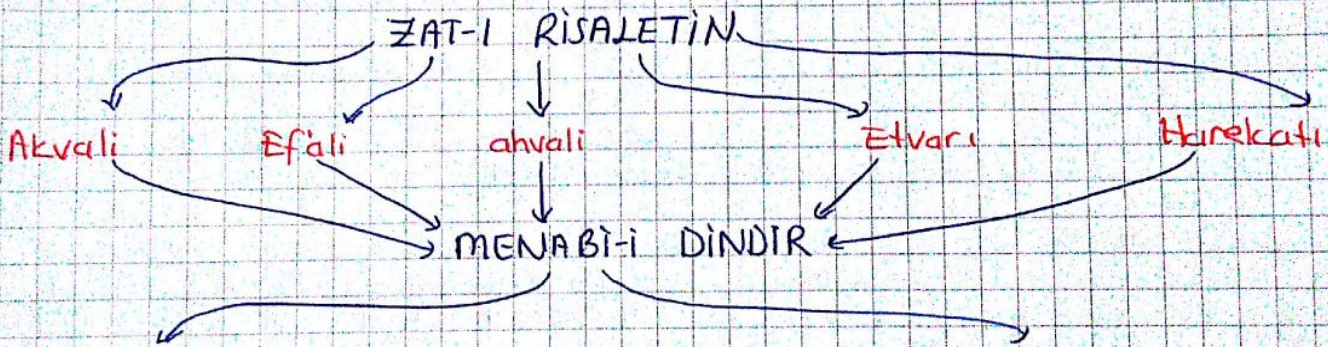 ZAT-I RİSALETİN
Akvali Ef'ali ahvali Etvarı Harekatı
MENABİ-İ DİNDİR